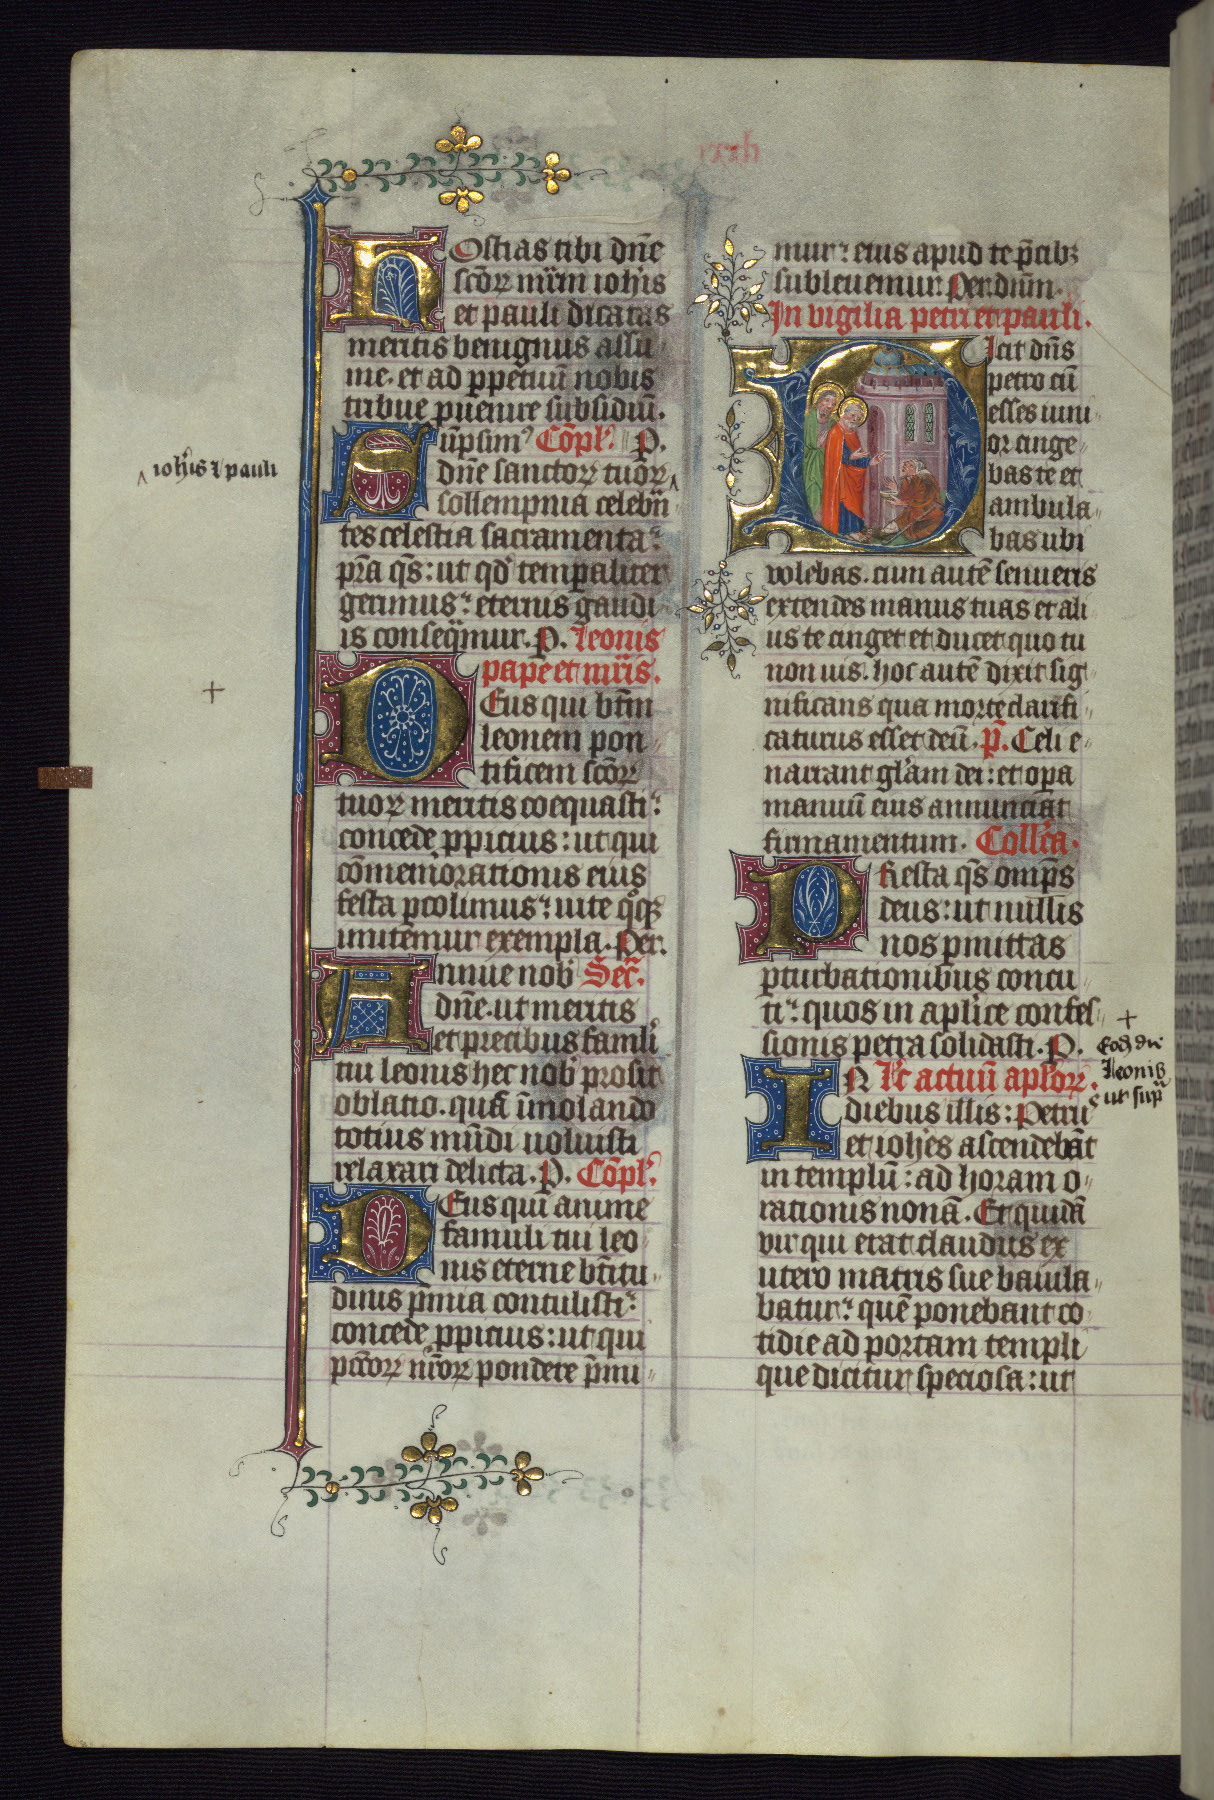 HOstias tibi dn̄e
sc̄oꝝ mr̄m ioh̄is
et pauli dicatas
meritis benignus assu
me. et ad ꝑpetuū nobis
tribue ꝓuenire subsidiū.
Sūpsimꝰ Cōpl'. P.
dn̄e sanctoꝝ tuoꝝ
ioh̄is ⁊ pauli
sollempnia celebrā
tes celestia sacramenta:
p̄ra q̄s: ut qd̓ temꝑaliter
gerimus: eternis gaudi
is conseq̄mur. P. Leonis
pape et mr̄is.
DEus qui bt̄m
leonem pon
tificem sc̄oꝝ
tuoꝝ meritis coequasti:
concede ꝓpicius: ut qui
cōmemorationis eius
festa ꝑcolimus: uite q̊qꝫ
imitemur exempla. Per.
Annue nob̄ Sec̄r.
dn̄e. ut meritis
et precibus famuli
tui leonis hec nob̄ prosit
oblatio. quā īmolando
totius mūdi uoluisti
relaxari delicta. P. Cōpl'.
DEus qui anime
famuli tui leo
nis eterne bt̄itu
dinis p̄mia contulisti:
concede ꝓpicius: ut qui
pc̄coꝝ nr̄oꝝ pondere p̄mi
mur: eius apud te p̄cibꝫ
subleuemur. Per dnm̄.
In vigilia petri et pauli.
DIcit dn̄s
petro cū
esses iuni
or cinge
bas te et
ambula
bas ubi
volebas. cum autē senueris
extendes manus tuas et ali
us te cinget et ducet quo tu
non uis. hoc autē dixit sig
nificans qua morte clarifi
caturus esset deū. p̄. Celi e
narrant gl̄am dei: et oꝑa
manuū eius annunciāt
firmamentum. Coll̄ca.
PResta q̄s omp̄s
deus: ut nullis
nos ꝑmittas
ꝑturbationibus concu
ti: quos in apl̄ice confes
sionis petra solidasti. P.
Eod̄ die
Leonis
ut sup̄
IN Lc̄ actuū apl̄oꝝ.
diebus illis: Petrus
et ioh̄es ascendebāt
in templū: ad horam o
rationis nonā. Et quidā
vir qui erat claudus ex
utero matris sue baiula
batur: quē ponebant co
tidie ad portam templi
que dicitur speciosa: ut